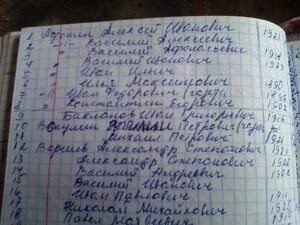 1 Афонин Алексей Иванович 1921
2 -"- Василий Алексеевич
3 " Василий Афанасьевич 1914
4 " Василий Иванович 1923
5 " Иван
6 " Илья Максимович 1890
7 -"- Иван Федорович 1896
8 " Константин Егорович 1902
9 Бакланов Иван Григорьевич 1916
10 Петрович
11 Михаил Петрович 1921
12 Александр Степанович 1923
13 Александр Степанович 1926
14 Василий Андреевич 1902
15 Василий Иванович
16 Иван Павлович 1911
17 Николай Михайлович 1925
18 Павел Моисеевич